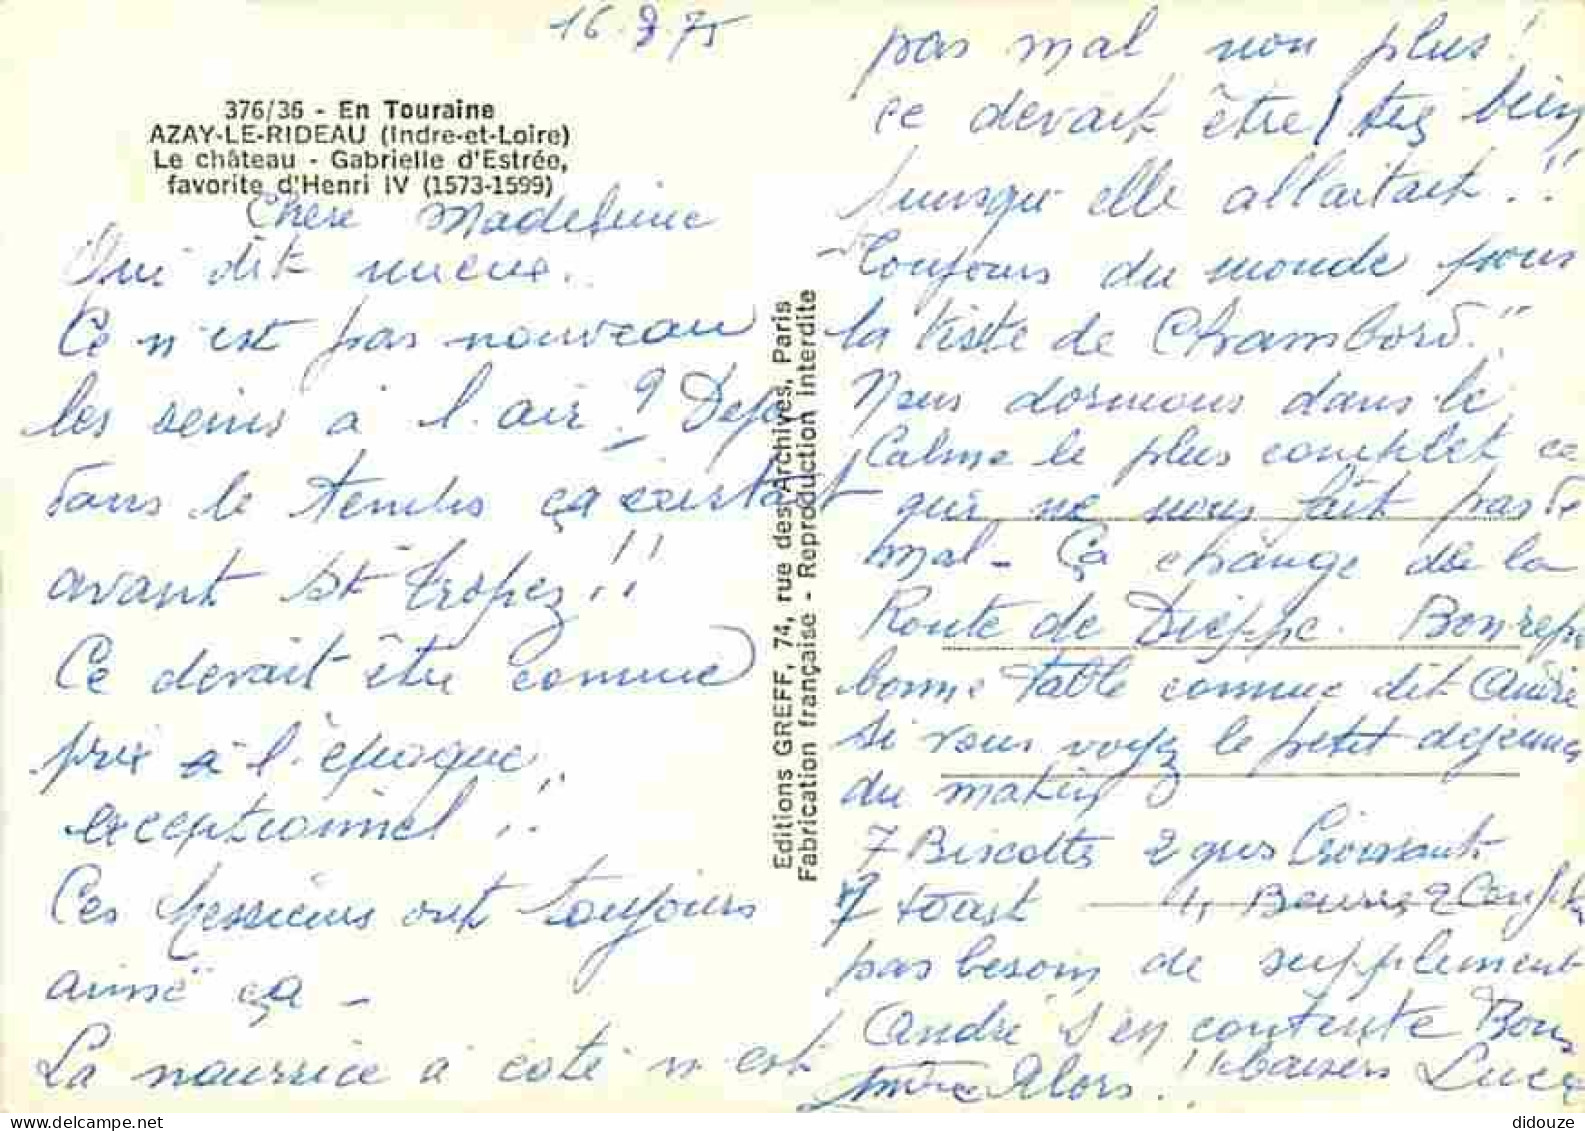 16.8.75
376/36 - En Touraine
AZAY-LE-RIDEAU (Indre-et-Loire)
Le château - Gabrielle d'Estrée,
favorite d'Henri IV (1573-1599)
Chère Madeleine
Qui dit mieux..
Ce n'est pas nouveau
les seins à l'air ? Deja
dans le temps ça existait
avant St Tropez !!
Ce devait être comme
prix à l'époque
exceptionnel !!
Ces Messieurs ont toujours
aimé ça -
La nourrice à coté n'est
Editions GREFF, 74, rue des Archives, Paris
Fabrication française - Reproduction interdite
pas mal non plus !
ce devait être très bien
puisqu'elle allaitait !!
Toujours du monde pour
la visite de Chambord.
Nous dormons dans le
Calme le plus complet ce
qui ne nous fait pas de
mal - Ça change de la
Route de Dieppe. Bon repas
bonne table comme dit André
si vous voyez le petit dejeuner
du matin
7 Biscottes 2 gros Croissants
7 toast 4 Beurre 2 Confit
pas besoin de supplement
André s'en contente Bons
baisers Luce
Alors !!
didouze